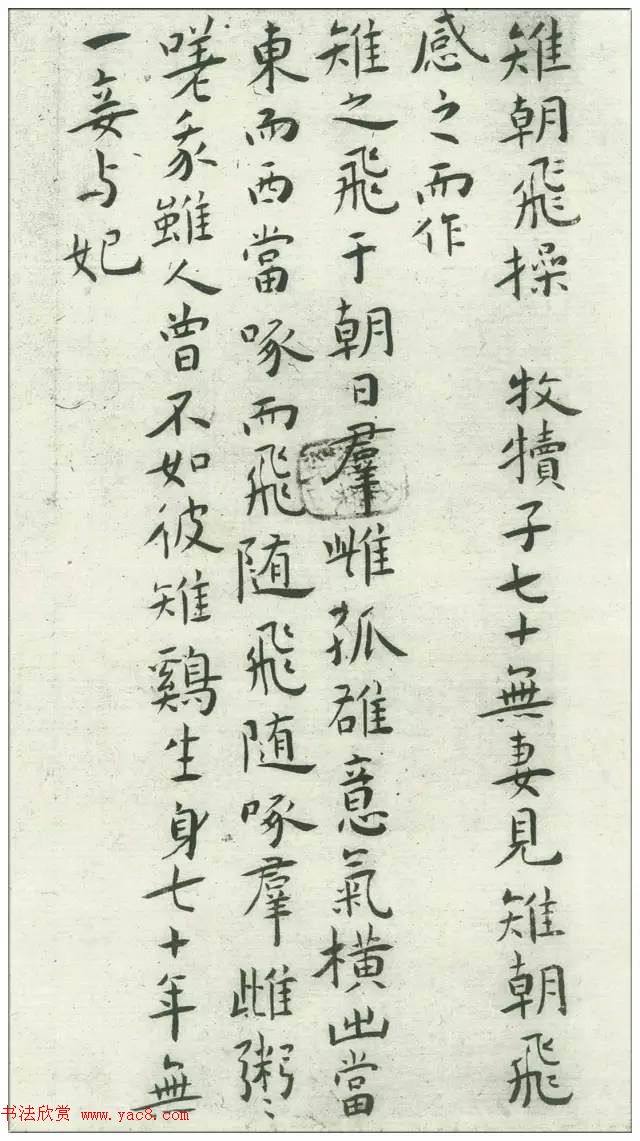 雉朝飛操　牧犢子七十無妻見雉朝飛
感之而作
雉之飛于朝日羣雌孤雄意氣橫出當
東而西當啄而飛随飛随啄羣雌粥〻
嗟我雖人曾不如彼雉鷄生身七十年無
一妾与妃
书法欣赏 www.yac8.com